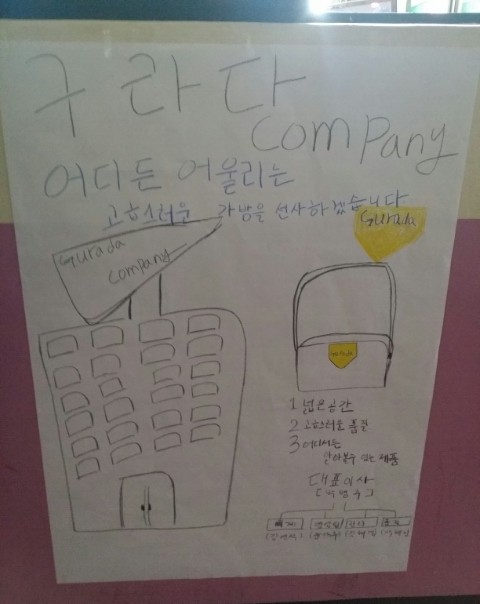 구라다
company
어디든 어울리는
고급스러운 가방을 선사하겠습니다
Gurada
company
Gurada
1 넓은공간
2 고급스러운 품질
3 어디서든
알아볼수 있는 제품
대표이사